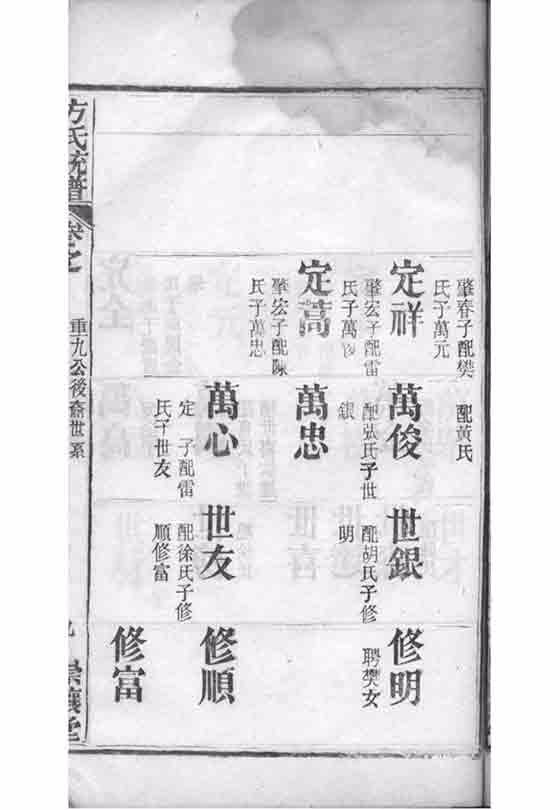 肇春子配樊
氏子萬元
配黃氏
定祥
肇宏子配雷
氏子萬俊
萬俊
配張氏子世
銀
世銀
配胡氏子修
明
修明
聘樊女
定萵
肇宏子配陳
氏子萬忠
萬忠
萬心
定 子配雷
氏子世友
世友
配徐氏子修
順修富
修順
修富
方氏統譜
卷之
重九公後裔世系
九
崇讓堂